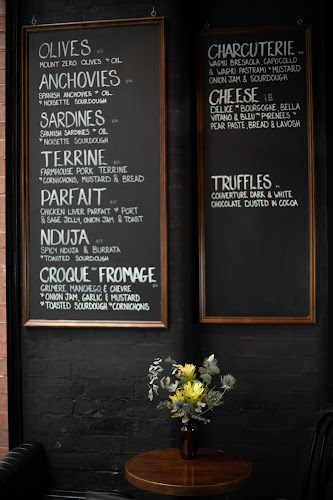 OLIVES
MOUNT ZERO OLIVES + OIL
ANCHOVIES
SPANISH ANCHOVIES + OIL
+ NOISETTE SOURDOUGH
SARDINES
SPANISH SARDINES + OIL
+ NOISETTE SOURDOUGH
TERRINE
FARMHOUSE PORK TERRINE
+ CORNICHONS, MUSTARD & BREAD
PARFAIT
CHICKEN LIVER PARFAIT + PORT
& SAGE JELLY, ONION JAM & TOAST
NDUJA
SPICY NDUJA & BURRATA
+ TOASTED SOURDOUGH
CROQUE FROMAGE
GRUYERE, MANCHEGO, & CHEVRE
+ ONION JAM, GARLIC & MUSTARD
+ TOASTED SOURDOUGH + CORNICHONS
CHARCUTERIE
WAGYU BRESAOLA, CAPOCOLLO
& WAGYU PASTRAMI + MUSTARD
ONION JAM & SOURDOUGH
CHEESE
DELICE DE BOURGOGNE, BELLA
VITANO & BLEU DES PYRENEES +
PEAR PASTE, BREAD & LAVOSH
TRUFFLES
COUVERTURE DARK & WHITE
CHOCOLATE DUSTED IN COCOA